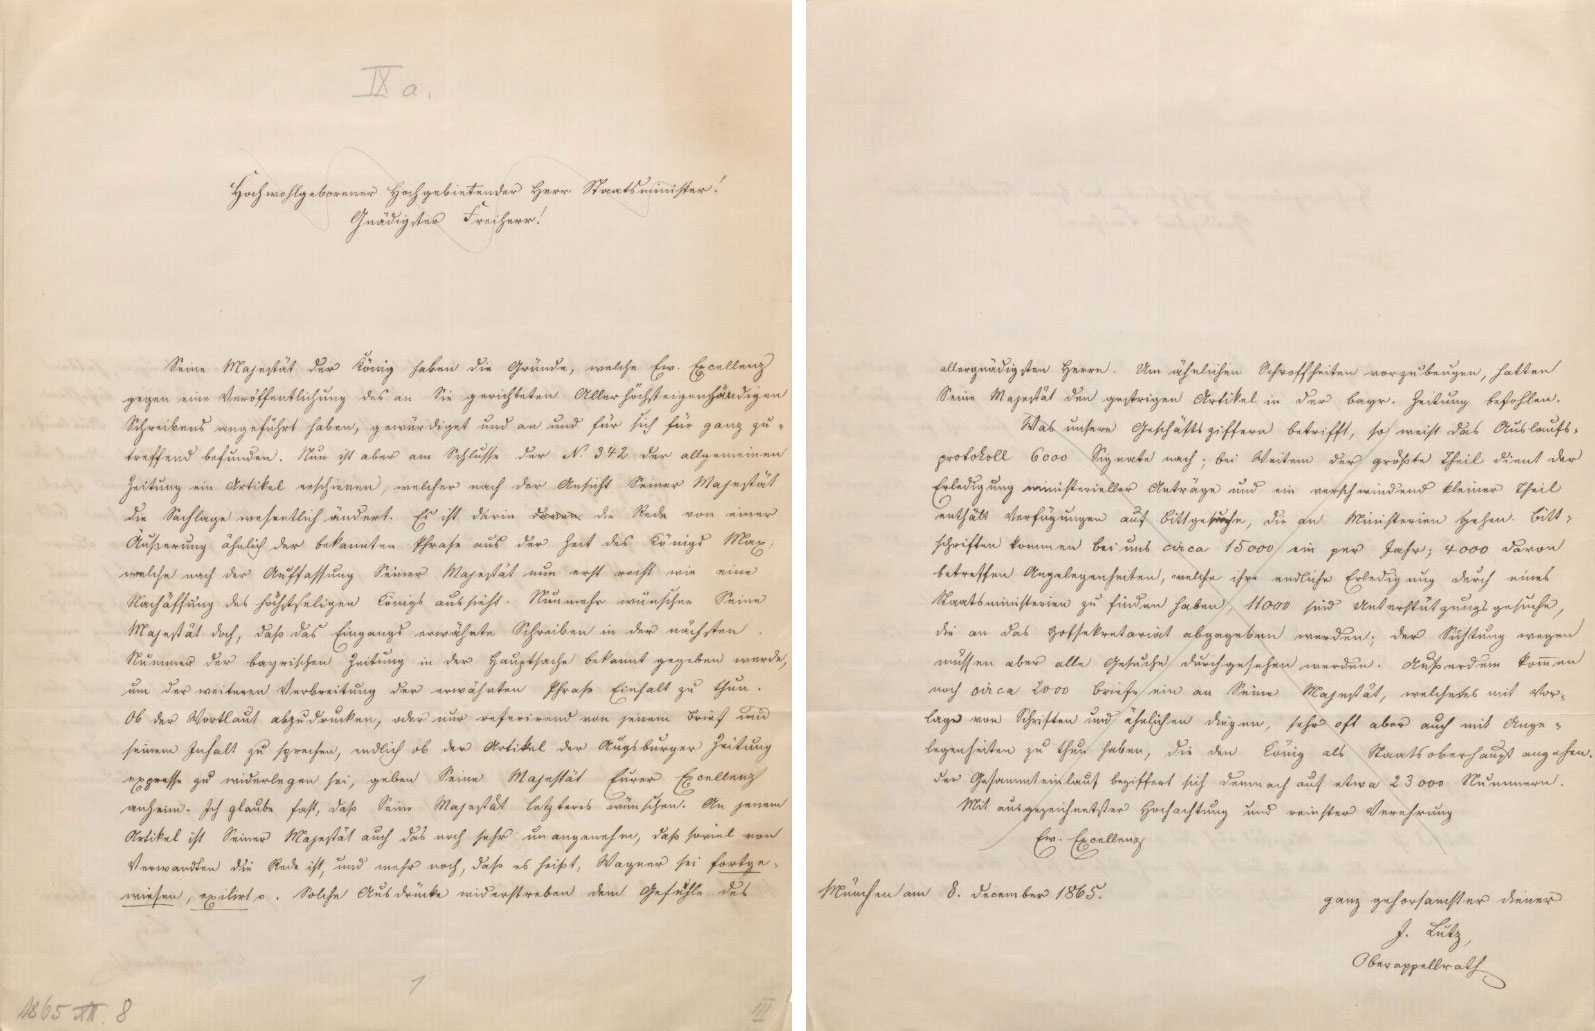 IX a.
Hochwohlgeborener Hochgebietender Herr Staatsminister!
Gnädigster Freiherr!
Seine Majestät der König haben die Gründe, welche Ew. Excellenz
gegen eine Veröffentlichung des an Sie gerichteten Allerhöchsteigenhändigen
Schreibens angeführt haben, gewürdiget und an und für sich für ganz zu-
treffend befunden. Nun ist aber am Schlusse der N 342 der allgemeinen
Zeitung ein Artikel erschienen, welcher nach der Ansicht Seiner Majestät
die Sachlage wesentlich ändert. Es ist darin davon die Rede von einer
Äußerung ähnlich der bekannten Phrase aus der Zeit des Königs Max,
welche nach der Auffassung Seiner Majestät nun erst recht wie eine
Nachäffung des höchstseligen Königs aussieht. Nunmehr wünschen Seine
Majestät doch, daß das Eingangs erwähnte Schreiben in der nächsten
Nummer der bayrischen Zeitung in der Hauptsache bekannt gegeben werde,
um der weiteren Verbreitung der erwähnten Phrase Einhalt zu thun.
Ob der Wortlaut abzudrucken, oder nur referirend von jenem Brief und
seinem Inhalt zu sprechen, endlich ob der Artikel der Augsburger Zeitung
expresse zu widerlegen sei, geben Seine Majestät Eurer Excellenz
anheim. Ich glaube fast, daß Seine Majestät letzteres wünschen. An jenem
Artikel ist Seiner Majestät auch das noch sehr unangenehm, daß soviel von
Verwandten die Rede ist, und mehr noch, daß es heißt, Wagner sei fortge-
wiesen, exilirt p. Solche Ausdrücke widerstreben dem Gefühle des
1
1865 XII. 8
III
allergnädigsten Herrn. Um ähnlichen Schroffheiten vorzubeugen, hatten
Seine Majestät den gestrigen Artikel in der bayr. Zeitung befohlen.
Was unsere Geschäftsziffern betrifft, so weist das Auslaufs-
protokoll 6000 Signate nach; bei Weitem der größte Theil dient der
Erledigung ministerieller Anträge und ein verschwindend kleiner Theil
enthält Verfügungen auf Bittgesuche, die an Ministerien gehen. Bitt-
schriften kommen bei uns circa 15000 ein per Jahr; 4000 davon
betreffen Angelegenheiten, welche ihre endliche Erledigung durch eines
Staatsministerien zu finden haben, 11000 sind Unterstützungsgesuche,
die an das Hofsekretariat abgegeben werden; der Sichtung wegen
müssen aber alle Gesuche durchgesehen werden. Außerdem kommen
noch circa 2000 Briefe ein an Seine Majestät, welche es mit Vor-
lage von Schriften und ähnlichen Dingen, sehr oft aber auch mit Ange-
legenheiten zu thun haben, die den König als Staatsoberhaupt angehen.
der Gesammteinlauf beziffert sich demnach auf etwa 23000 Nummern.
Mit ausgezeichnetster Hochachtung und reinster Verehrung
Ew. Excellenz
München am 8. December 1865.
ganz gehorsamster Diener
J. Lutz,
Oberappellrath